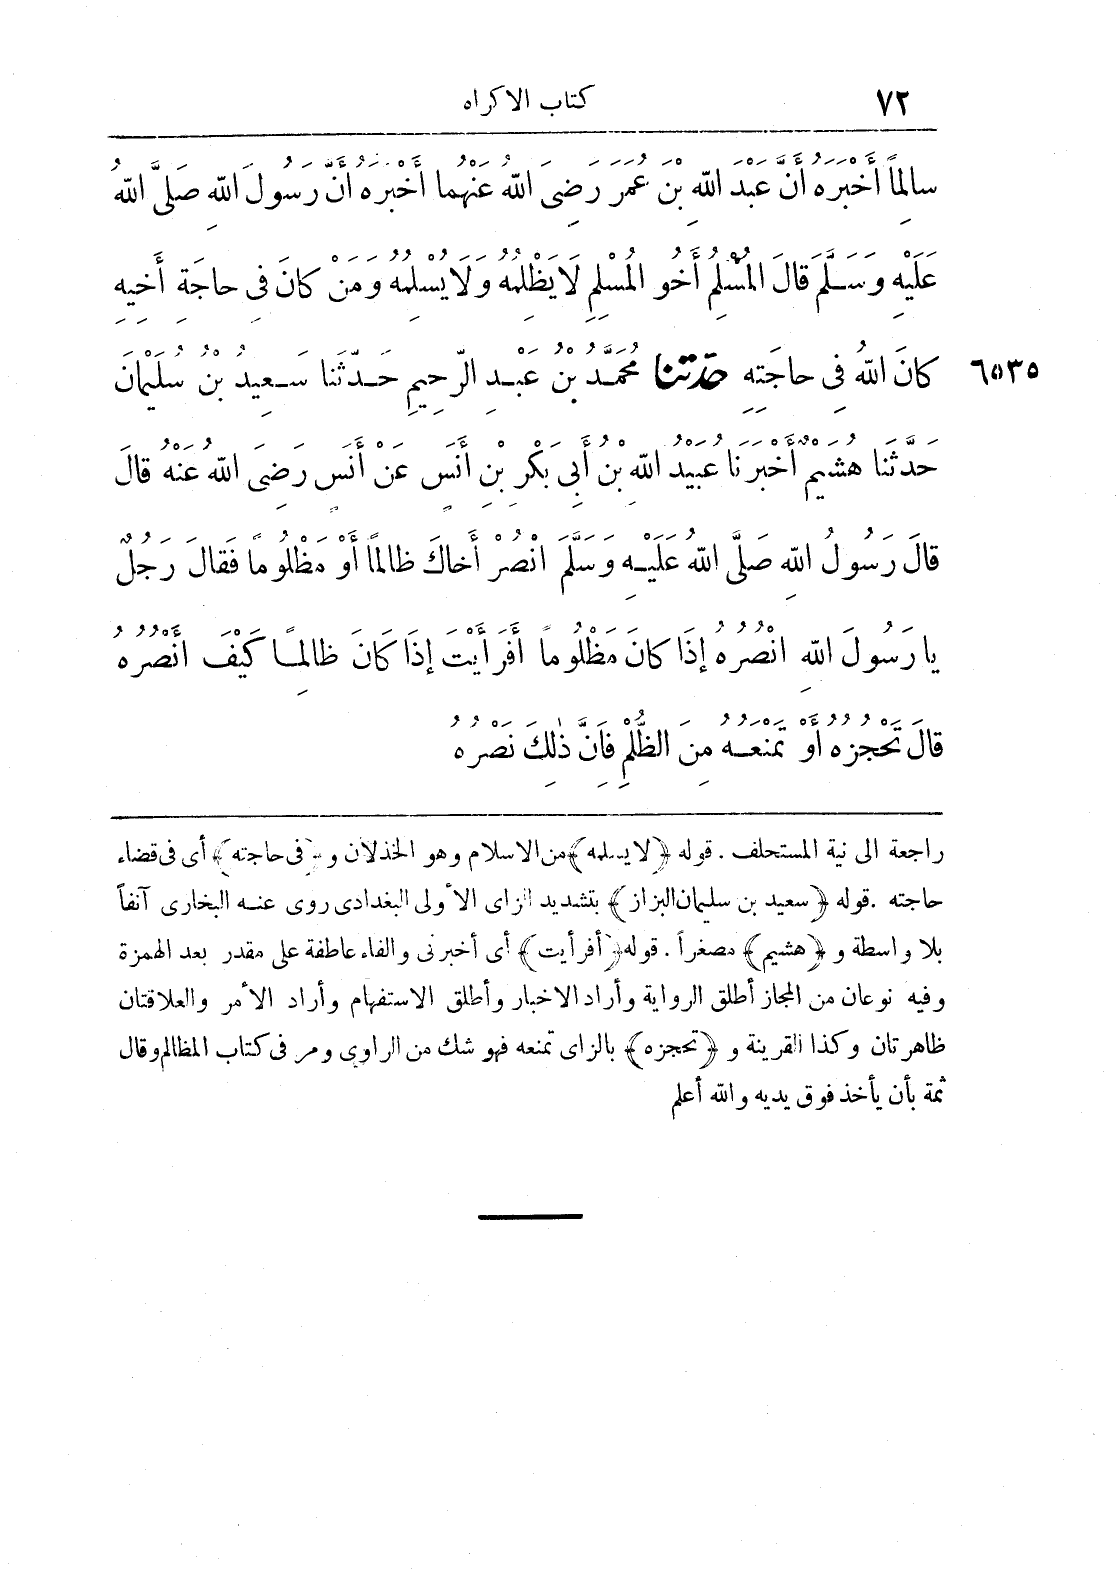 ٧٢
كتاب الاكراه
سَالِمًا أَخْبَرَهُ أَنَّ عَبْدَ اللهِ بْنَ عُمَرَ رَضِيَ اللهُ عَنْهُمَا أَخْبَرَهُ أَنَّ رَسُولَ اللهِ صَلَّى اللهُ
عَلَيْهِ وَسَلَّمَ قَالَ الْمُسْلِمُ أَخُو الْمُسْلِمِ لَا يَظْلِمُهُ وَلَا يُسْلِمُهُ وَمَنْ كَانَ فِى حَاجَةِ أَخِيهِ
٦٥٣٥ كَانَ اللهُ فِى حَاجَتِهِ حَدَّثَنَا مُحَمَّدُ بْنُ عَبْدِ الرَّحِيمِ حَدَّثَنَا سَعِيدُ بْنُ سُلَيْمَانَ
حَدَّثَنَا هُشَيْمٌ أَخْبَرَنَا عُبَيْدُ اللهِ بْنُ أَبِى بَكْرِ بْنِ أَنَسٍ عَنْ أَنَسٍ رَضِىَ اللهُ عَنْهُ قَالَ
قَالَ رَسُولُ اللهِ صَلَّى اللهُ عَلَيْهِ وَسَلَّمَ انْصُرْ أَخَاكَ ظَالِمًا أَوْ مَظْلُومًا فَقَالَ رَجُلٌ
يَا رَسُولَ اللهِ انْصُرُهُ إِذَا كَانَ مَظْلُومًا أَفَرَأَيْتَ إِذَا كَانَ ظَالِمًا كَيْفَ أَنْصُرُهُ
قَالَ تَحْجُزُهُ أَوْ تَمْنَعُهُ مِنَ الظُّلْمِ فَانَّ ذٰلِكَ نَصْرُهُ
راجعة الى نية المستحلف . قوله ﴿لا يسلمه﴾ من الاسلام وهو الخذلان و ﴿فى حاجته﴾ أى فى قضاء
حاجته . قوله ﴿سعيد بن سليمان البزاز﴾ بتشديد الزاى الأولى البغدادى روى عنه البخارى آنفاً
بلا واسطة و ﴿هشيم﴾ مصغراً . قوله ﴿أفرأيت﴾ أى أخبرنى والفاء عاطفة على مقدر بعد الهمزة
وفيه نوعان من المجاز أطلق الرواية وأراد الاخبار وأطلق الاستفهام وأراد الأمر والعلاقتان
ظاهرتان وكذا القرينة و ﴿تحجزه﴾ بالزاى تمنعه فهو شك من الراوى ومر فى كتاب المظالم وقال
ثمة بأن يأخذ فوق يديه والله أعلم